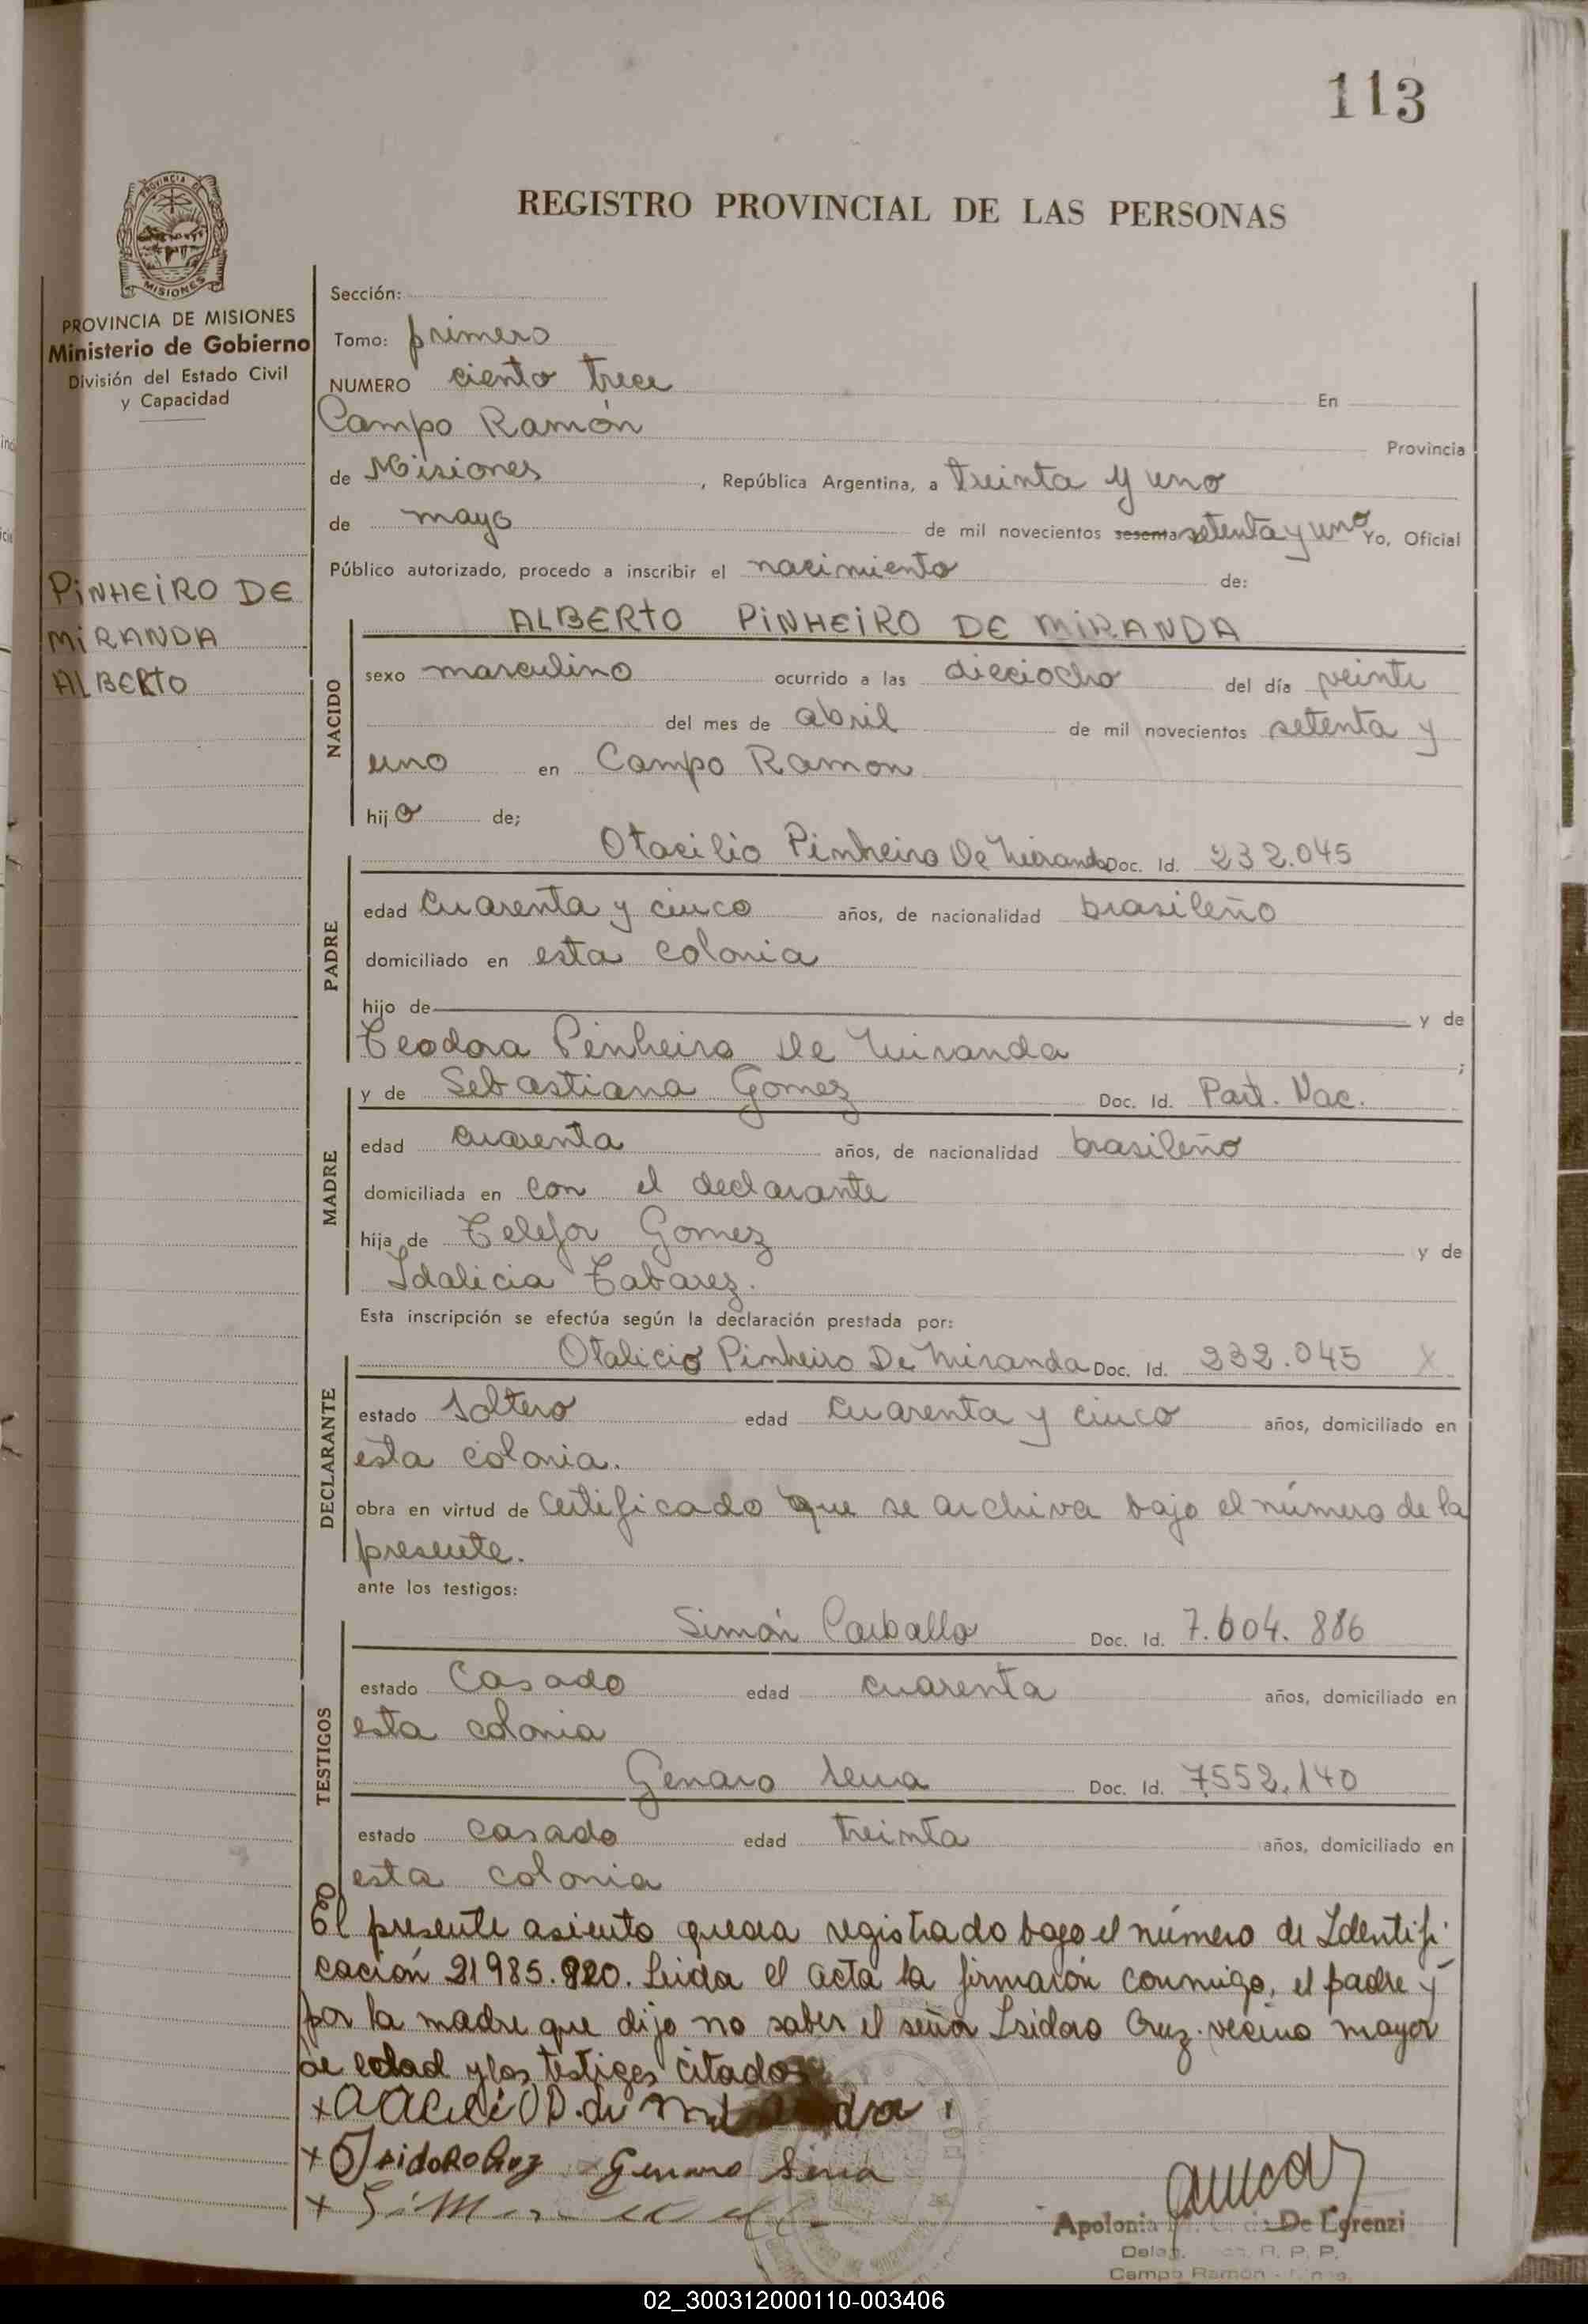 113
REGISTRO PROVINCIAL DE LAS PERSONAS
PROVINCIA DE MISIONES
MISIONES
PROVINCIA DE MISIONES
Ministerio de Gobierno
División del Estado Civil
y Capacidad
PINHEIRO DE
MIRANDA
ALBERTO
Sección:
Tomo: primero
NUMERO ciento trece En
Campo Ramón Provincia
de Misiones, República Argentina, a treinta y uno
de mayo de mil novecientos sesenta setenta y uno Yo, Oficial
Público autorizado, procedo a inscribir el nacimiento de:
NACIDO
ALBERTO PINHEIRO DE MIRANDA
sexo masculino ocurrido a las dieciocho del día veinte
del mes de abril de mil novecientos setenta y
uno en Campo Ramon
hijo de;
PADRE
Otacilio Pinheiro De Miranda Doc. Id. 232.045
edad cuarenta y cinco años, de nacionalidad brasileño
domiciliado en esta colonia
hijo de y de
Teodora Pinheiro De Miranda ;
MADRE
y de Sebastiana Gomez Doc. Id. Part. Nac.
edad cuarenta años, de nacionalidad brasileño
domiciliada en con el declarante
hija de Telefor Gomez y de
Idalicia Tabarez.
Esta inscripción se efectúa según la declaración prestada por:
DECLARANTE
Otalicio Pinheiro De Miranda Doc. Id. 232.045 X
estado Soltero edad cuarenta y cinco años, domiciliado en
esta colonia.
obra en virtud de certificado que se archiva bajo el número de la
presente.
ante los testigos:
TESTIGOS
Simón Carballo Doc. Id. 7.604.886
estado Casado edad cuarenta años, domiciliado en
esta colonia
Genaro Sena Doc. Id. 7.552.140
estado casado edad treinta años, domiciliado en
esta colonia
El presente asiento queda registrado bajo el número de Identifi-
cación 21985.820. Leida el acta la firmaron conmigo, el padre y
por la madre que dijo no saber el señor Isidoro Cruz vecino mayor
de edad y los testigos citados
x
x Isidoro Cruz Genaro Sena
x
Apolonia De Lorenzi
R. P. P.
Campo Ramón
02_300312000110-003406